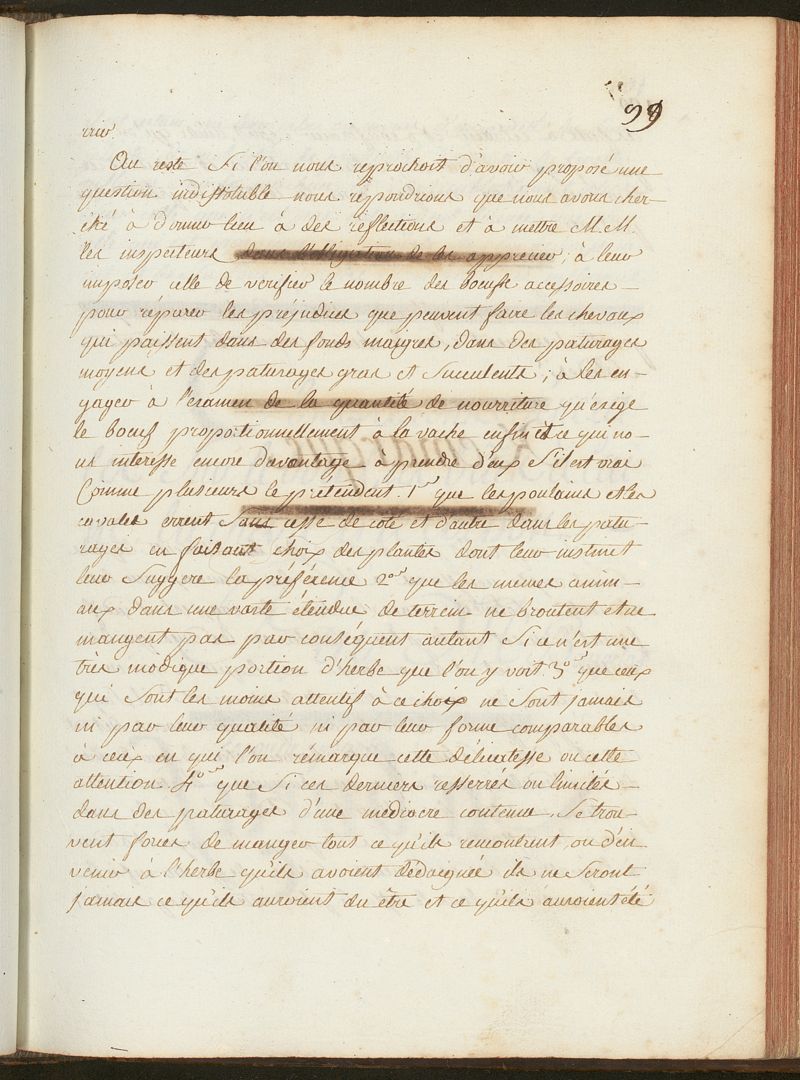 99
rrir.
Au reste Si l'on nous reprochoit d'avoir proposé une
question indissoluble nous répondrions que nous avons cher-
ché à donner lieu à des réflections et à mettre M.M.
les inspecteurs dans l'obligation de les apprecier, à leur
imposer celle de verifier le nombre des boeufs accessoires -
pour réparer les préjudices que peuvent faire les chevaux
qui paissent dans des fonds maigres, dans des paturages
moyens et des paturages gras et Succulents ; à les en-
gager à l'examen de la quantité de nourriture qu'exige
le boeuf proportionnellement à la vache enfin et ce qui no-
us interesse encore davantage à prendre d'eux S'il est vrai
Comme plusieurs le prétendent. 1° que les poulains et les
cavales errent Sans cesse de coté et d'autre dans les patu-
rages en faisant choix des plantes dont leur instinct
leur Suggere la préférence 2° que les memes anim-
aux dans une vaste étendue de terrein ne broutent et ne
mangent pas par conséquent autant Si ce n'est une
très modique portion d'herbe que l'on y voit. 3° que ceux
qui Sont les moins attentif à ce choix ne Sont jamais
ni par leur qualité ni par leur forme comparables
à ceux en qui l'on rémarque cette délicatesse ou cette
attention. 4° que Si ces derniers resserrés ou limités -
dans des paturages d'une mediocre contenue. Se trou-
vent forcés de manger tout ce qu'ils rencontrent, ou d'en
venir à l'herbe qu'ils avoient dédaignée ils ne Seront
jamais ce qu'ils auroient du être et ce qu'ils auroient été